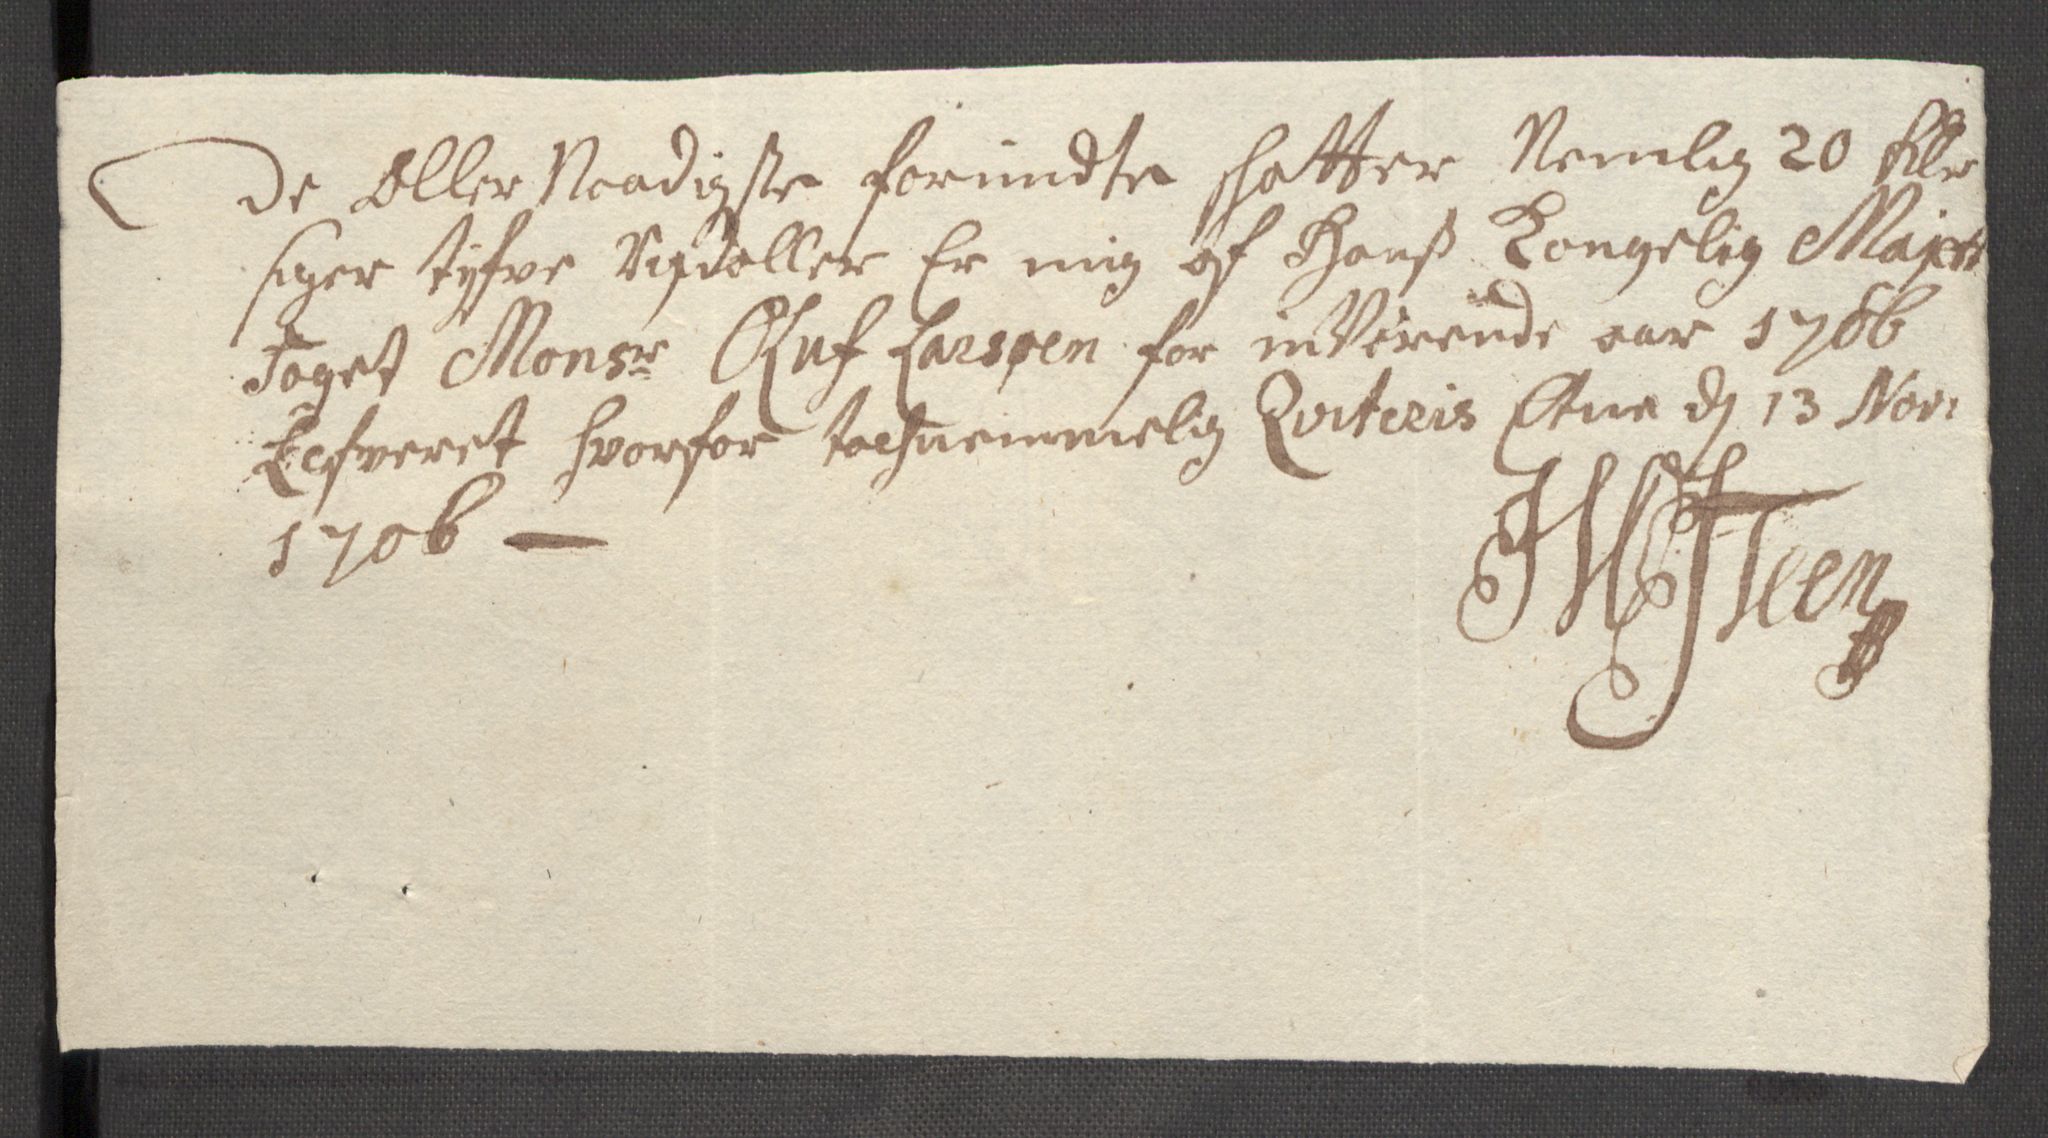 De Aller Naadigste forundte schatter Nemlig 20 Rdlr
siger tyfve Rixdaller Er mig af Hans Kongelig Majets
Foget Monsr Oluf Larsøen for inVerende aar 1706
Lefveret hvorfor tachnemmelig Qviteris Etne d 13 Nov:
1706 —
HSTeen